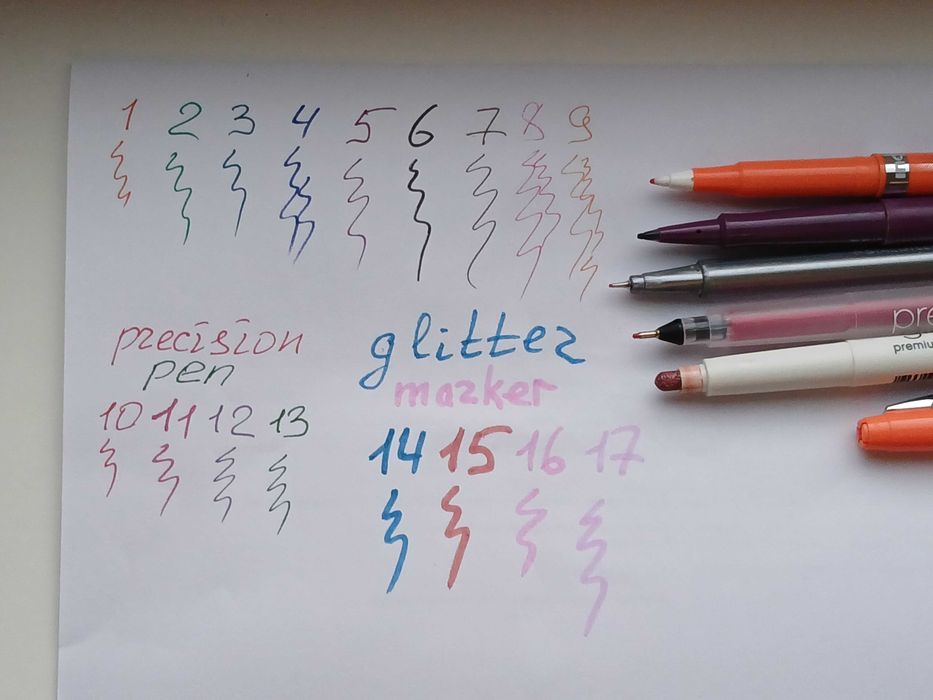 1 2 3 4 5 6 7 8 9
precision
pen
10 11 12 13
glitter
marker
14 15 16 17
pre
premium